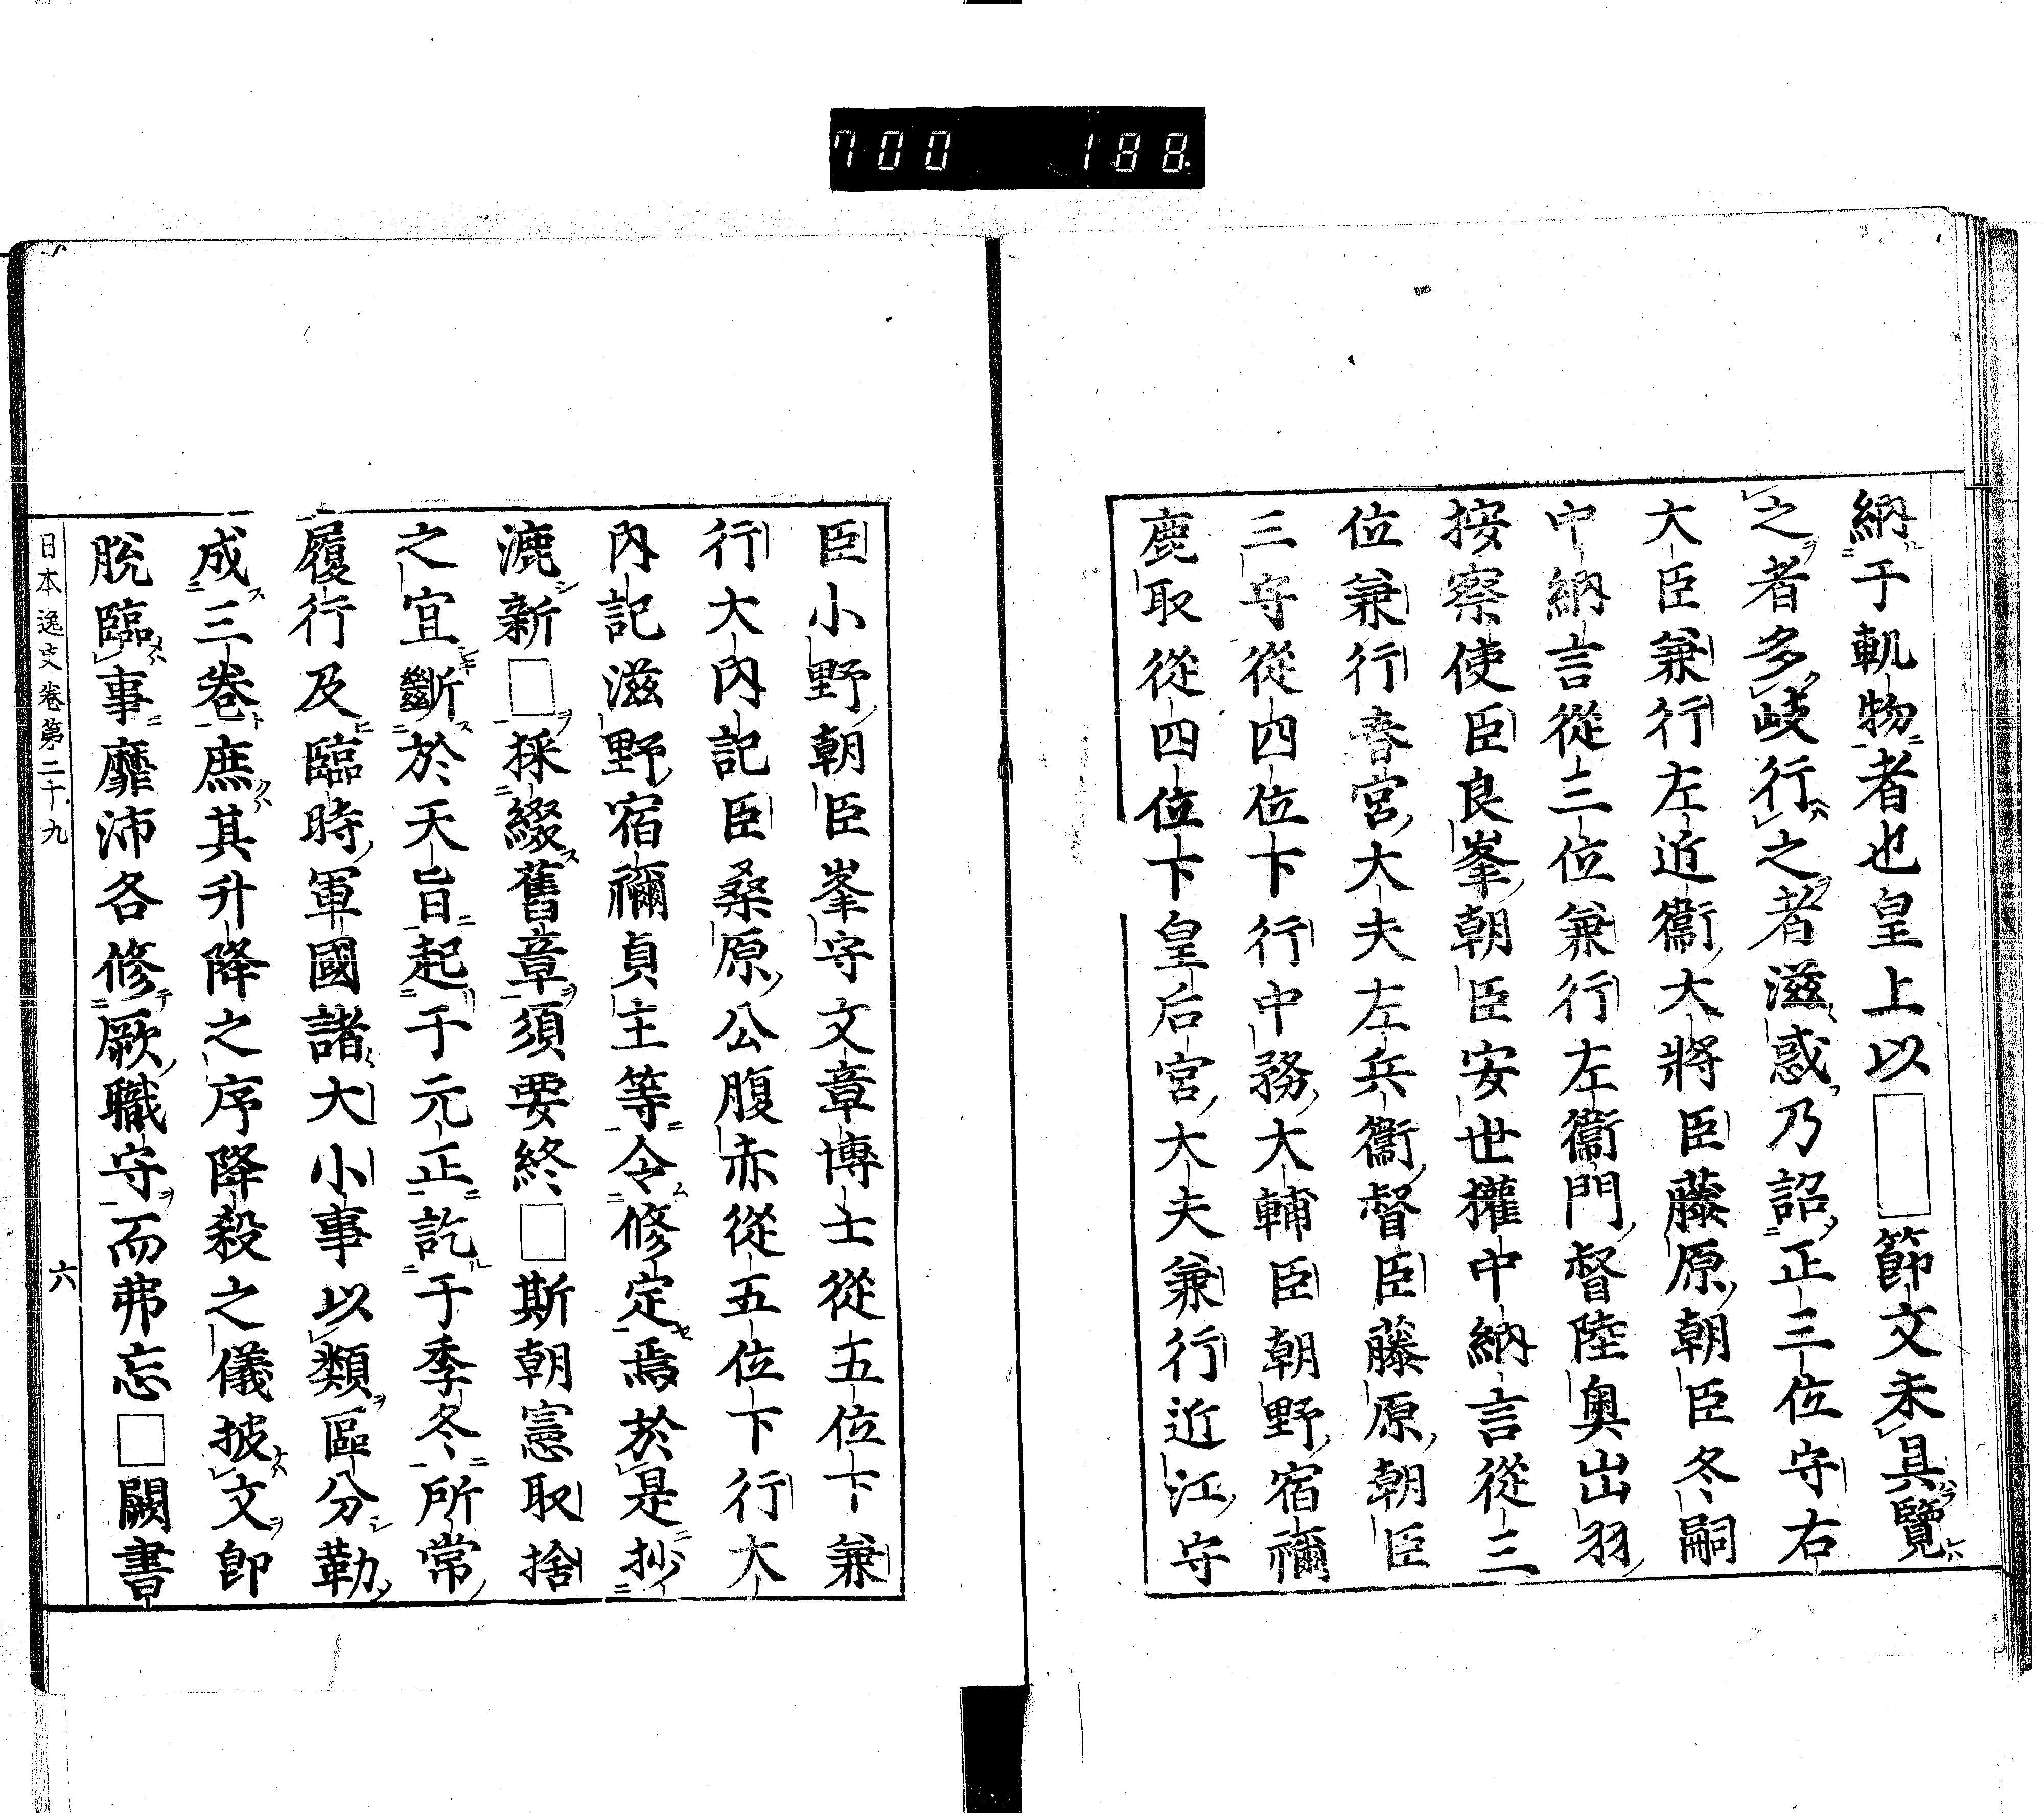 700 188
納于軌物者也皇上以□節文未具覽
之者多岐行之者滋惑乃詔正三位守右
大臣兼行左近衞大將臣藤原朝臣冬嗣
中納言從三位兼行左衞門督陸奧出羽
按察使臣良峯朝臣安世權中納言從三
位兼行春宮大夫左兵衞督臣藤原朝臣
三守從四位下行中務大輔臣朝野宿禰
鹿取從四位下皇后宮大夫兼行近江守
臣小野朝臣峯守文章博士從五位下兼
行大內記臣桑原公腹赤從五位下行大
內記滋野宿禰貞主等令修定焉於是抄
漉新□採綴舊章須要終□斯朝憲取捨
之宜斷於天旨起于元正訖于季冬所常
履行及臨時軍國諸大小事以類區分勒
成三卷庶其升降之序降殺之儀披文卽
脫臨事靡沛各修厥職守而弗忘□闕書
日本逸史卷第二十九 六